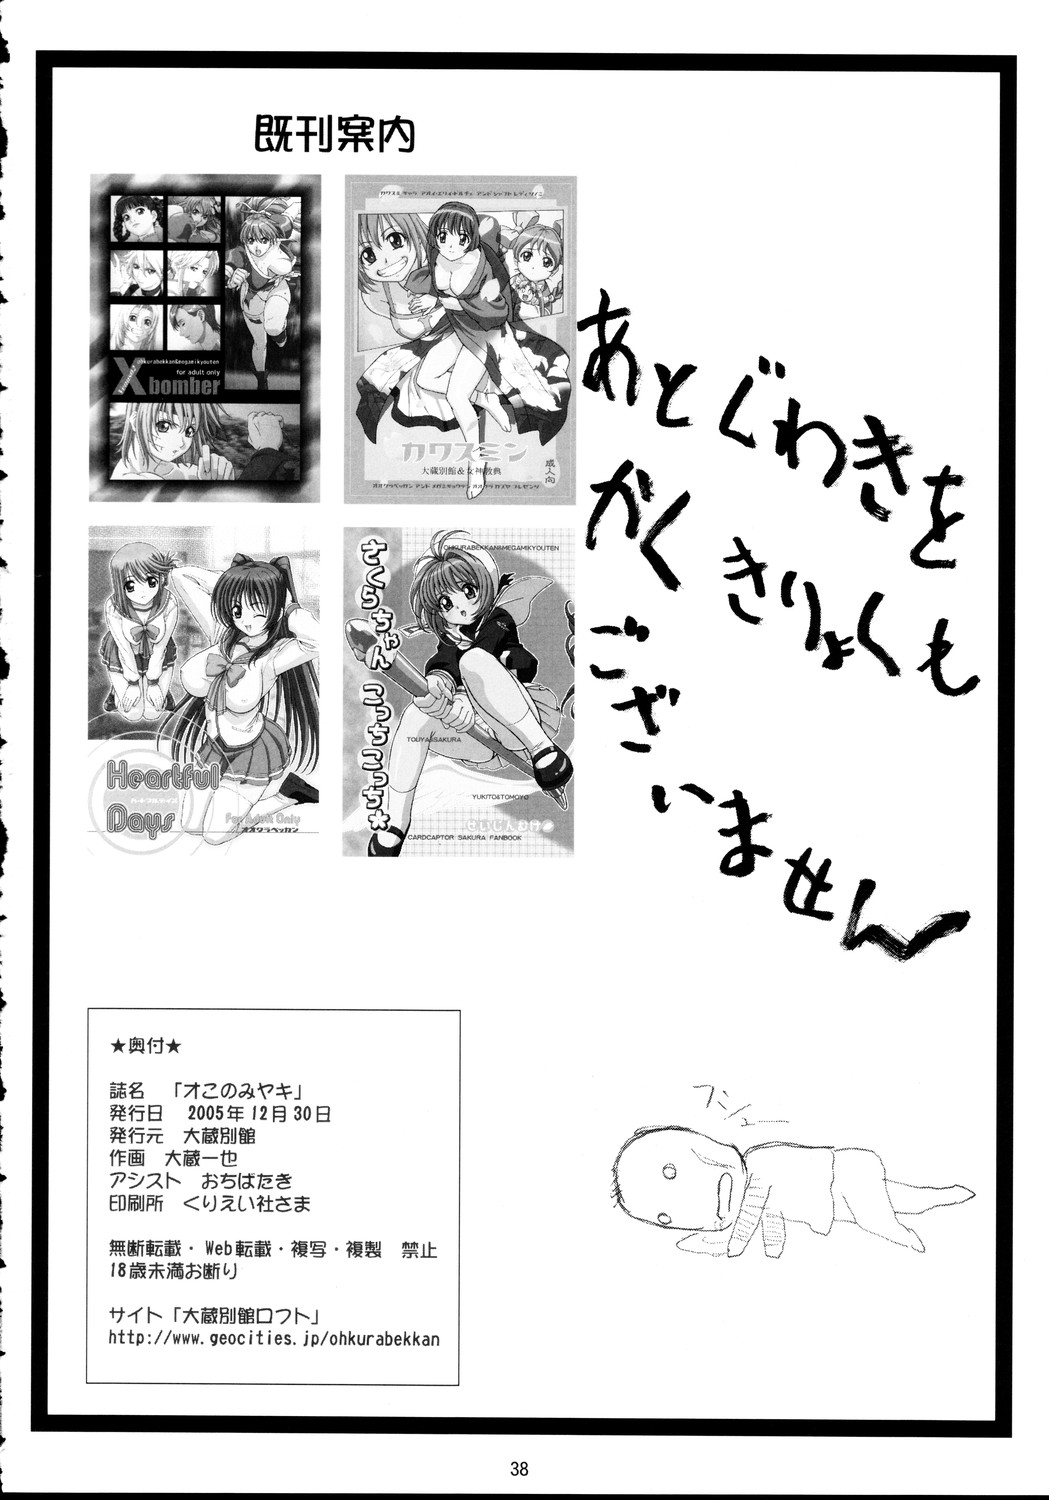 既刊案内
ohkurabekkan&megamikyouten
for adult only
X bomber
カワスミン
大蔵別館&女神教典
成人向
Heartful
ハートフルデイズ
Days
For Adult Only
オオクラベッカン
OHKURABEKKAN&MEGAMIKYOUTEN
さくらちゃん こっちこっち★
TOUYA&SAKURA
YUKITO&TOMOYO
CARDCAPTOR SAKURA FANBOOK
あとぐわきを
かくきりょくも
ございません
★奥付★
誌名 「オこのみヤキ」
発行日 2005年12月30日
発行元 大蔵別館
作画 大蔵一也
アシスト おちばたき
印刷所 くりえい社さま
無断転載・Web転載・複写・複製 禁止
18歳未満お断り
サイト「大蔵別館ロフト」
http://www.geocities.jp/ohkurabekkan
フシュー……
38